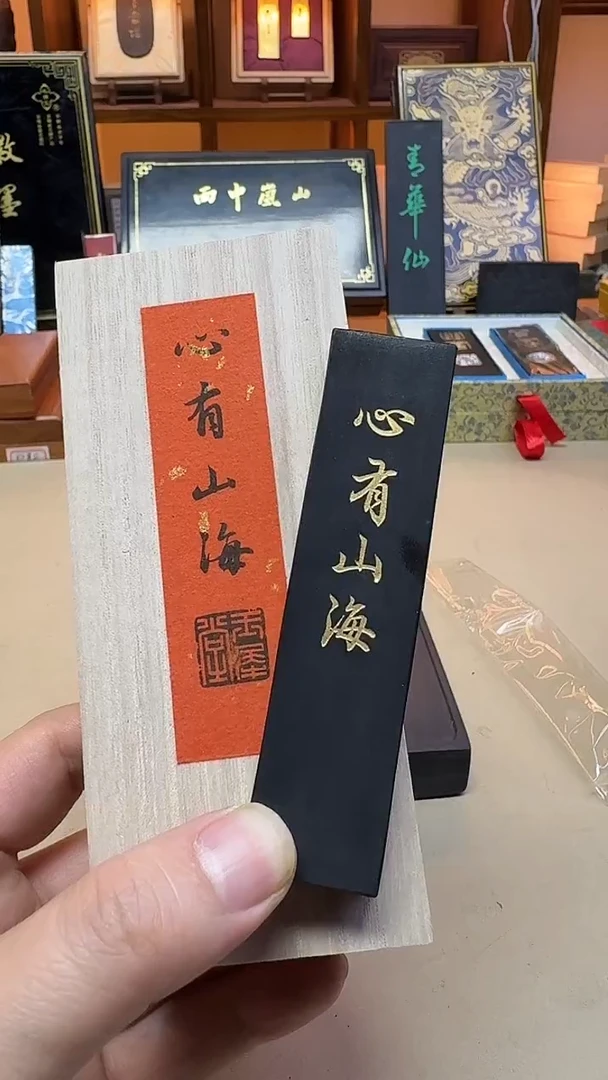 雨中嵐山
青華仙
心有山海
心有山海